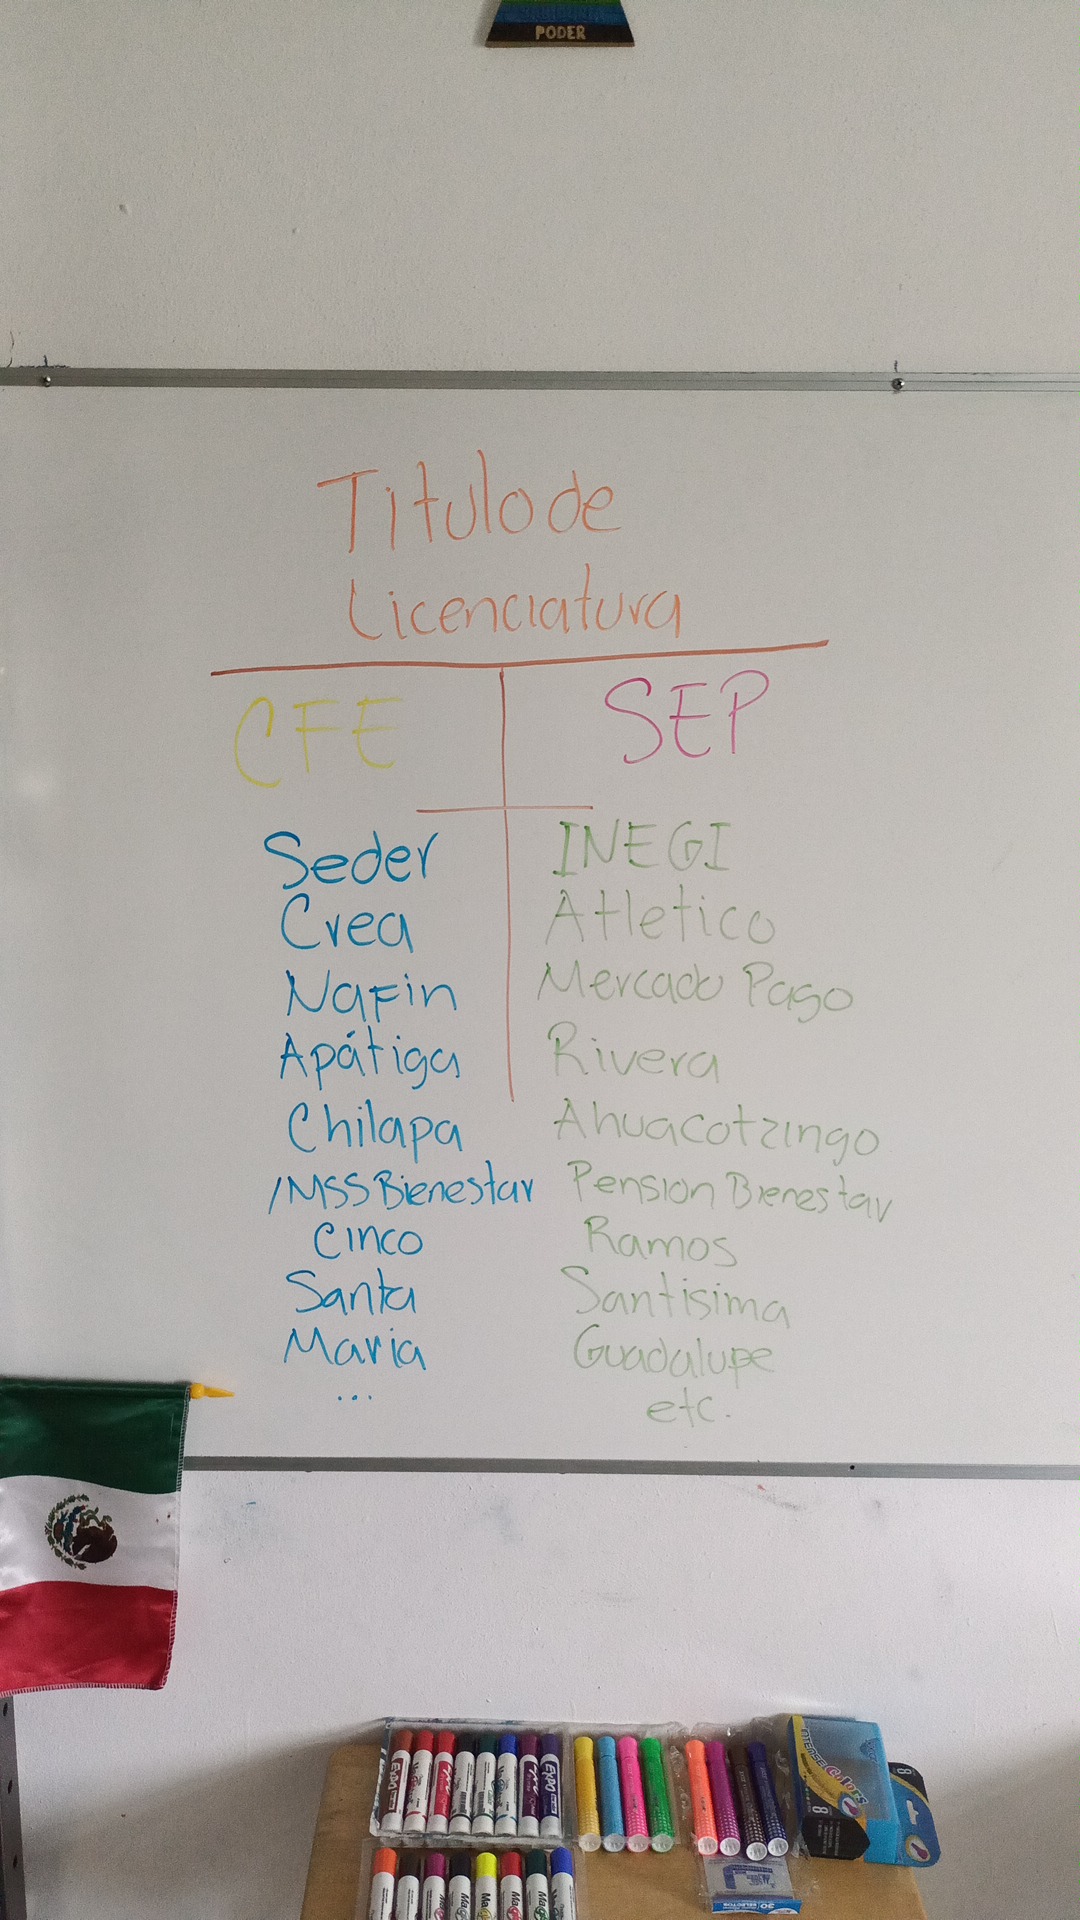 PODER
Titulo de
Licenciatura
CFE
SEP
Seder
Crea
Nafin
Apátiga
Chilapa
IMSS Bienestar
Cinco
Santa
Maria
...
INEGI
Atletico
Mercado Pago
Rivera
Ahuacotzingo
Pension Bienestar
Ramos
Santisima
Guadalupe
etc.
EXPO
EXPO
INTENSE Colors
8
8